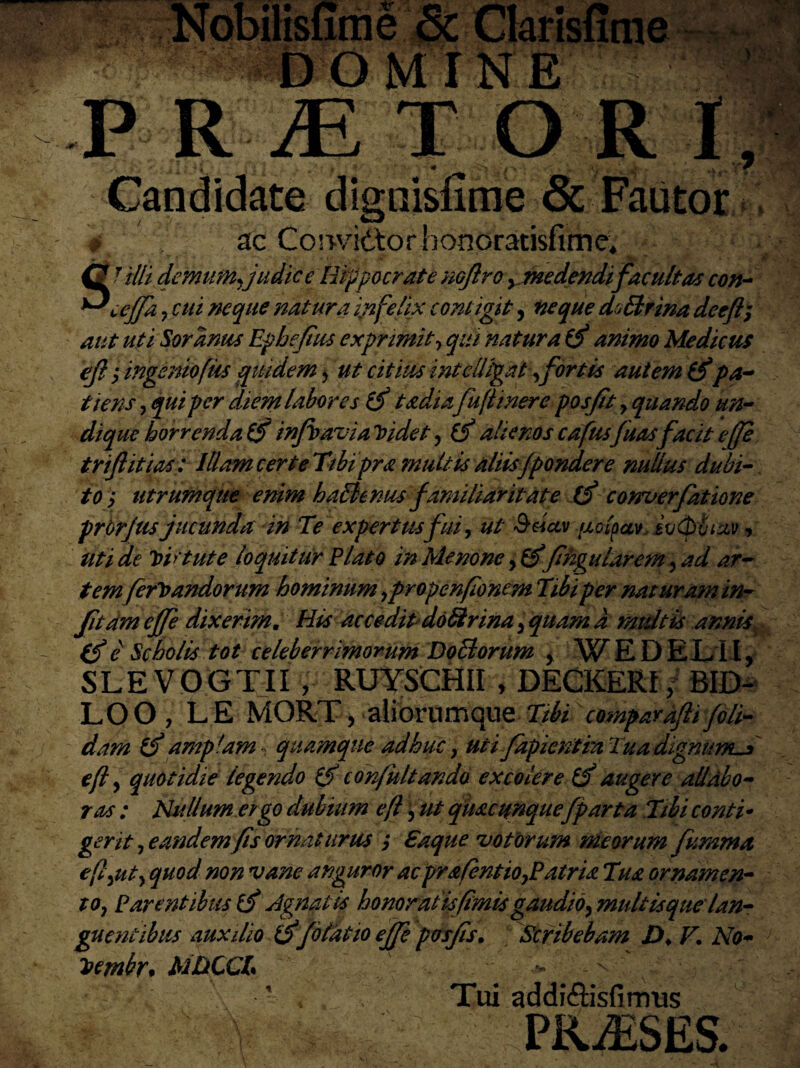 Nobilisſime & Clarisſime
DOMINE
PRÆTORI,
Candidate dignisſime & Fautor
ac Convictor honoratisſime.
SI illi demum, judice Hippocrate noſtro, medendi facultas con-
ceſſa, cui neque natura infelix contigit, neque doctrina deeſt;
aut uti Soranus Epheſius exprimit, qui natura & animo Medicus
eſt; ingenioſus quidem, ut citius intelligat, fortis autem & pa-
tiens, qui per diem labores & tædia ſuſtinere posſit, quando un-
dique horrenda & inſvavia videt, & alienos caſus ſuas facit eſſe
triſtitias: Illam certe Tibi præ multis aliis ſpondere nullus dubi-
to; utrumque enim hactenus familiaritate & converſatione
prorſus jucunda in Te expertus fui, ut
uti de virtute loquitur Plato in Menone, & ſingularem, ad ar-
tem ſervandorum hominum, propenſionem Tibi per naturam in-
ſitam eſſe dixerim. His accedit doctrina, quam à multis annis
& è Scholis tot celeberrimorum Doctorum, WEDELII,
SLEVOGTII, RUYSCHII, DECKERI, BID-
LOO, LE MORT, aliorumque Tibi comparaſti ſoli-
dam & amplam quamque adhuc, uti ſapientia Tua dignum
eſt, quotidie legendo & conſultando excolere & augere allabo-
ras: Nullum ergo dubium eſt, ut quæcunque ſparta Tibi conti-
gerit, eandem ſis ornaturus; Eaque votorum meorum ſumma
eſt, ut, quod non vane anguror ac præſentio, Patriæ Tuæ ornamen-
to, Parentibus & Agnatis honoratisſimis gaudio, multisque lan-
guentibus auxilio & ſolatio eſſe posſis. Scribebam D. V. No-
vembr. MDCCI.
Tui addictisſimus
PRÆSES.